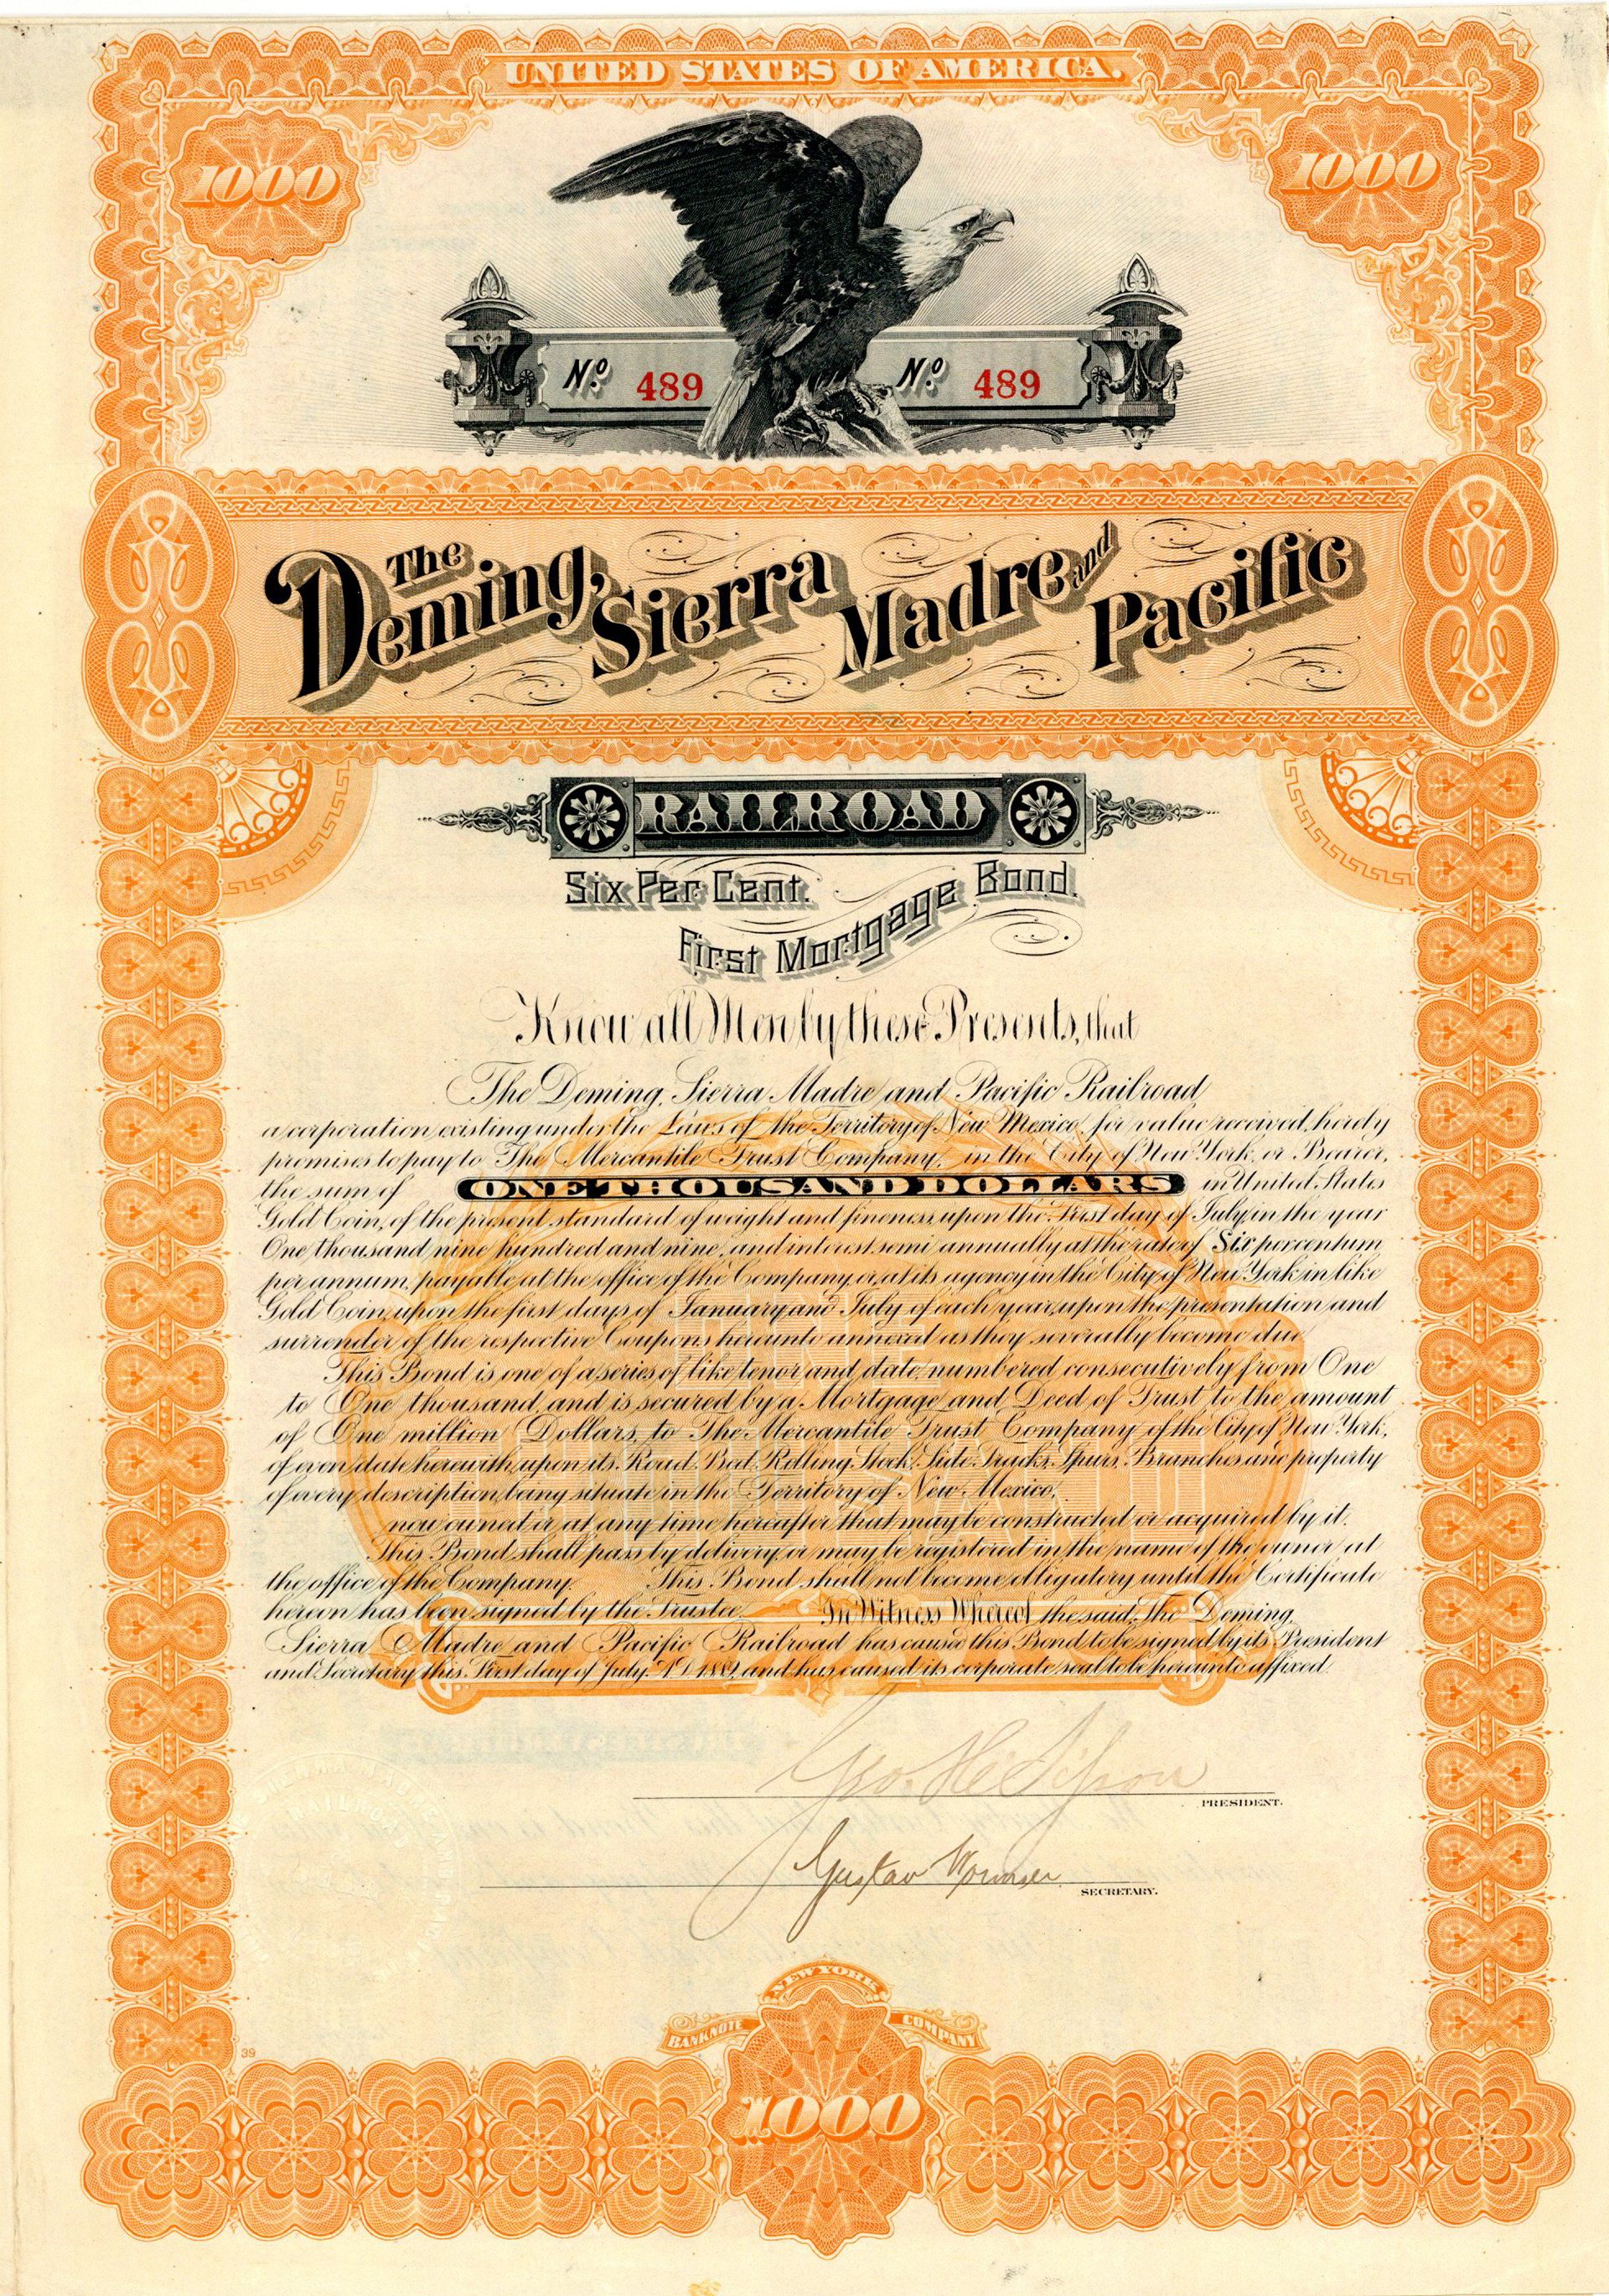 UNITED STATES OF AMERICA.
1000 1000
Nº 489 Nº 489
The Deming, Sierra Madre and Pacific
RAILROAD
Six Per Cent.
First Mortgage Bond.
Know all Men by these Presents, that
The Deming, Sierra Madre and Pacific Railroad
a corporation existing under the Laws of the Territory of New Mexico, for value received, hereby
promises to pay to The Mercantile Trust Company, in the City of New York, or Bearer,
the sum of ONE THOUSAND DOLLARS in United States
Gold Coin, of the present standard of weight and fineness, upon the First day of July, in the year
One thousand nine hundred and nine, and interest semi annually at the rate of Six per centum
per annum, payable at the office of the Company, or at its agency in the City of New York in like
Gold Coin, upon the first days of January and July of each year, upon the presentation and
surrender of the respective Coupons hereunto annexed as they severally become due.
This Bond is one of a series of like tenor and date, numbered consecutively from One
to One thousand, and is secured by a Mortgage and Deed of Trust to the amount
of One million Dollars, to The Mercantile Trust Company of the City of New York,
of even date herewith, upon its Road Bed, Rolling Stock, Side Tracks, Spurs, Branches and property
of every description, being situate in the Territory of New Mexico,
now owned or at any time hereafter that may be constructed or acquired by it.
This Bond shall pass by delivery, or may be registered in the name of the owner at
the office of the Company. This Bond shall not become obligatory until the Certificate
hereon has been signed by the Trustee. In Witness Whereof the said, The Deming,
Sierra Madre and Pacific Railroad has caused this Bond to be signed by its President
and Secretary this First day of July, A.D. 1889, and has caused its corporate seal to be hereunto affixed.
Geo. H. Sisson
PRESIDENT.
Gustav Wormser
SECRETARY.
NEW YORK
BANKNOTE COMPANY
39
1000